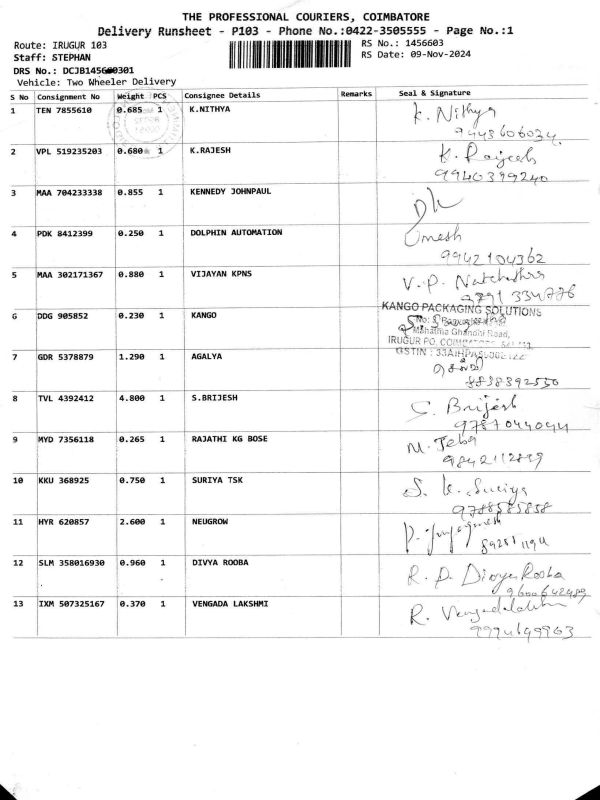 THE PROFESSIONAL COURIERS, COIMBATORE
Delivery Runsheet - P103 - Phone No.:0422-3505555 - Page No.:1
Route: IRUGUR 103
RS No.: 1456603
Staff: STEPHAN
RS Date: 09-Nov-2024
DRS No.: DCJB145660301
Vehicle: Two Wheeler Delivery
S No Consignment No Weight PCS Consignee Details Remarks Seal & Signature
1 TEN 7855610 0.685 1 K.NITHYA K. Nithya
9443606034
2 VPL 519235203 0.680 1 K.RAJESH K. Rajesh
9940399240
3 MAA 704233338 0.855 1 KENNEDY JOHNPAUL
4 PDK 8412399 0.250 1 DOLPHIN AUTOMATION Umesh
9942104362
5 MAA 302171367 0.880 1 VIJAYAN KPNS V. P.
6 DDG 905852 0.230 1 KANGO KANGO PACKAGING SOLUTIONS
Mahatma Ghandhi Road,
IRUGUR PO, COIMBATORE
GSTIN : 33AIHPA
7 GDR 5378879 1.290 1 AGALYA
8838392550
8 TVL 4392412 4.800 1 S.BRIJESH S. Brijesh
9787044044
9 MYD 7356118 0.265 1 RAJATHI KG BOSE M. Jeba
9842112899
10 KKU 368925 0.750 1 SURIYA TSK S. K. Suriya
9788585858
11 HYR 620857 2.600 1 NEUGROW
12 SLM 358016930 0.960 1 DIVYA ROOBA R. D. Divya Rooba
9600642489
13 IXM 507325167 0.370 1 VENGADA LAKSHMI R. Vengadalakshmi
9994699963